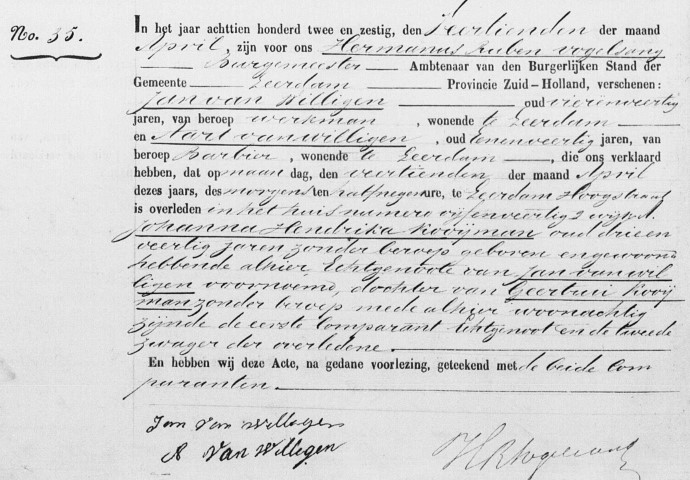 No. 35.
In het jaar achttien honderd twee en zestig, den Veertienden der maand
April, zijn voor ons Hermanus Ruben Vogelsang
Burgemeester Ambtenaar van den Burgerlijken Stand der
Gemeente Leerdam Provincie Zuid-Holland, verschenen:
Jan van Willigen oud vierenveertig
jaren, van beroep werkman, wonende te Leerdam
en Aart van Willigen, oud eenenveertig jaren, van
beroep Barbier, wonende te Leerdam, die ons verklaard
hebben, dat op maandag, den veertienden der maand April
dezes jaars, des morgens ten half negen ure, te Leerdam Hoogstraat
is overleden in het huis numero vijfenveertig 2 wijk A.
Johanna Hendrika Kooijman oud drieen
veertig jaren zonder beroep geboren en gewoond
hebbende alhier, Echtgenoote van Jan van Wil
ligen voornoemd, dochter van Geertrui Kooij
man zonder beroep mede alhier woonachtig
zijnde de eerste Comparant Echtgenoot en de tweede
zwager der overledene.
En hebben wij deze Acte, na gedane voorlezing, geteekend met de beide Com
paranten.
Jan Van Willegen
A Van Willigen
HRVogelsang